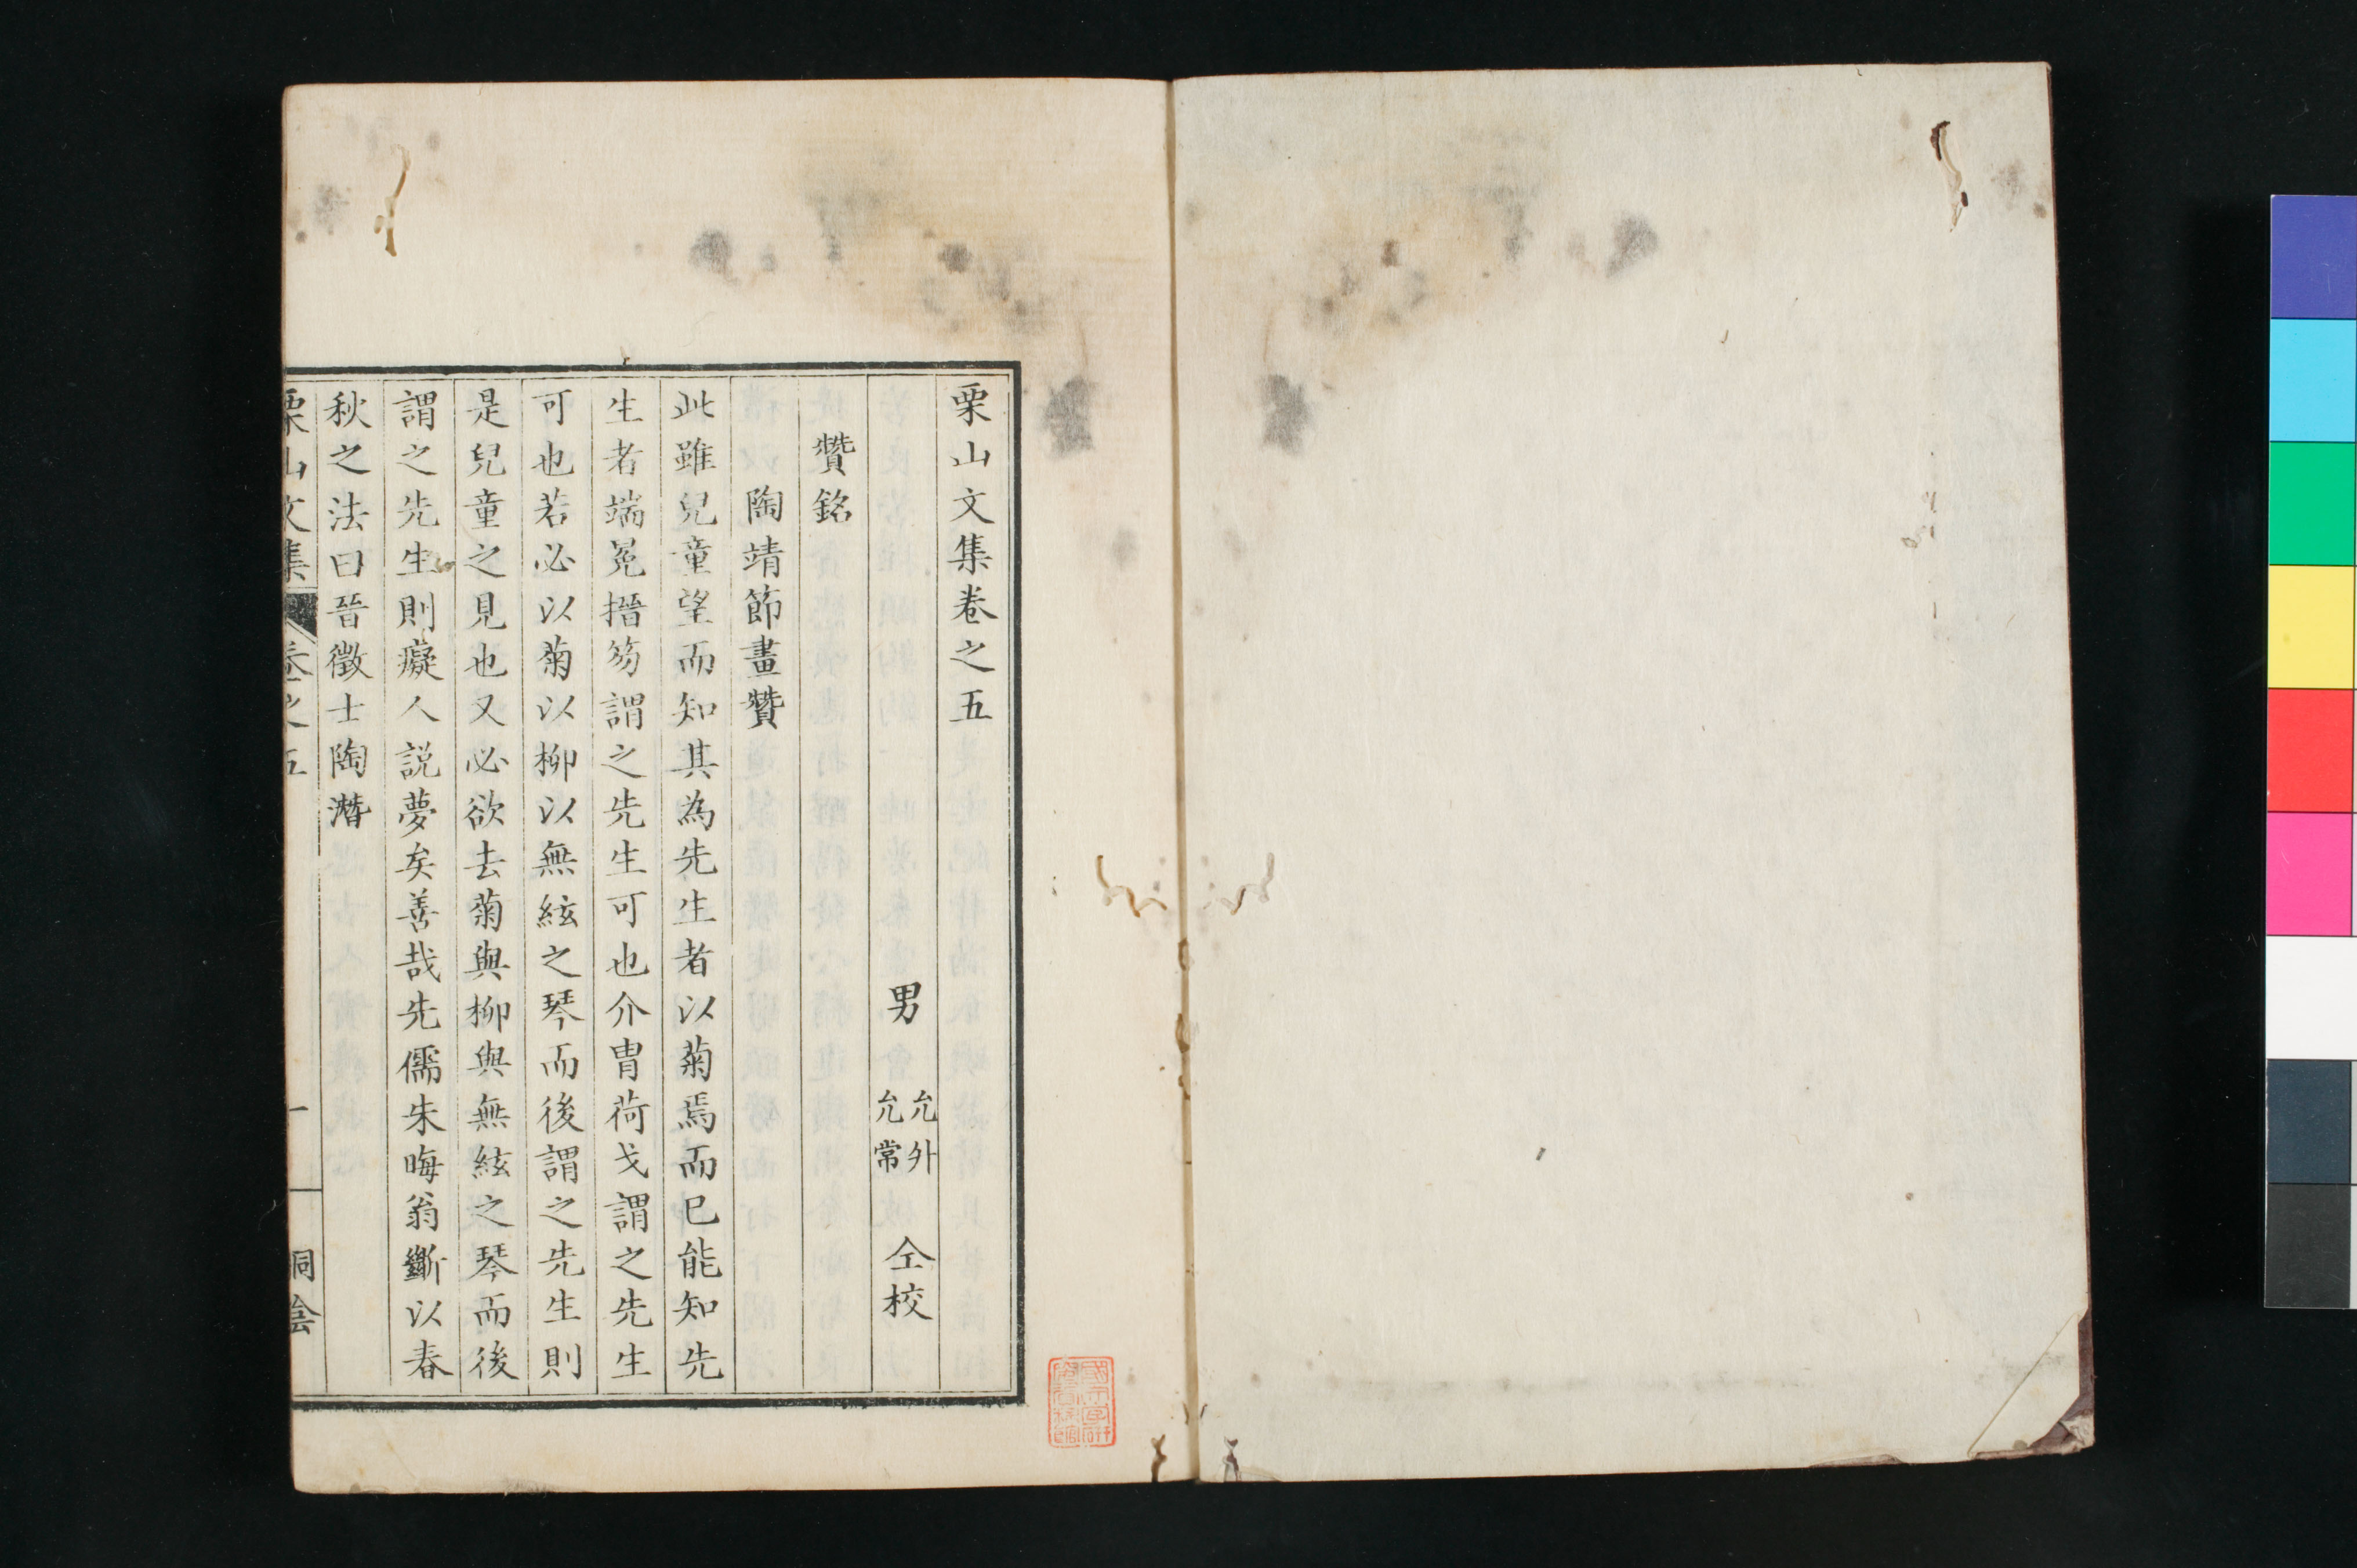 栗山文集卷之五
男
允外
允常
仝校
贊銘
陶靖節畫贊
此雖兒童望而知其為先生者以菊焉而已能知先
生者端冕搢笏謂之先生可也介冑荷戈謂之先生
可也若必以菊以柳以無絃之琴而後謂之先生則
是兒童之見也又必欲去菊與柳與無絃之琴而後
謂之先生則癡人説夢矣善哉先儒朱晦翁斷以春
秋之法曰晉徵士陶潛
栗山文集
卷之五
一